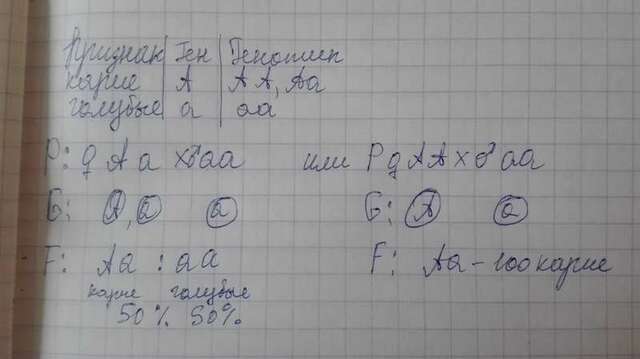 Признак Ген Генотип
карие А АА, Аа
голубые а аа
P: ♀ Аа х♂аа или P ♀ АА х ♂ аа
G: А, а а G: А а
F: Аа : аа F: Аа - 100 карие
карие голубые
50% 50%